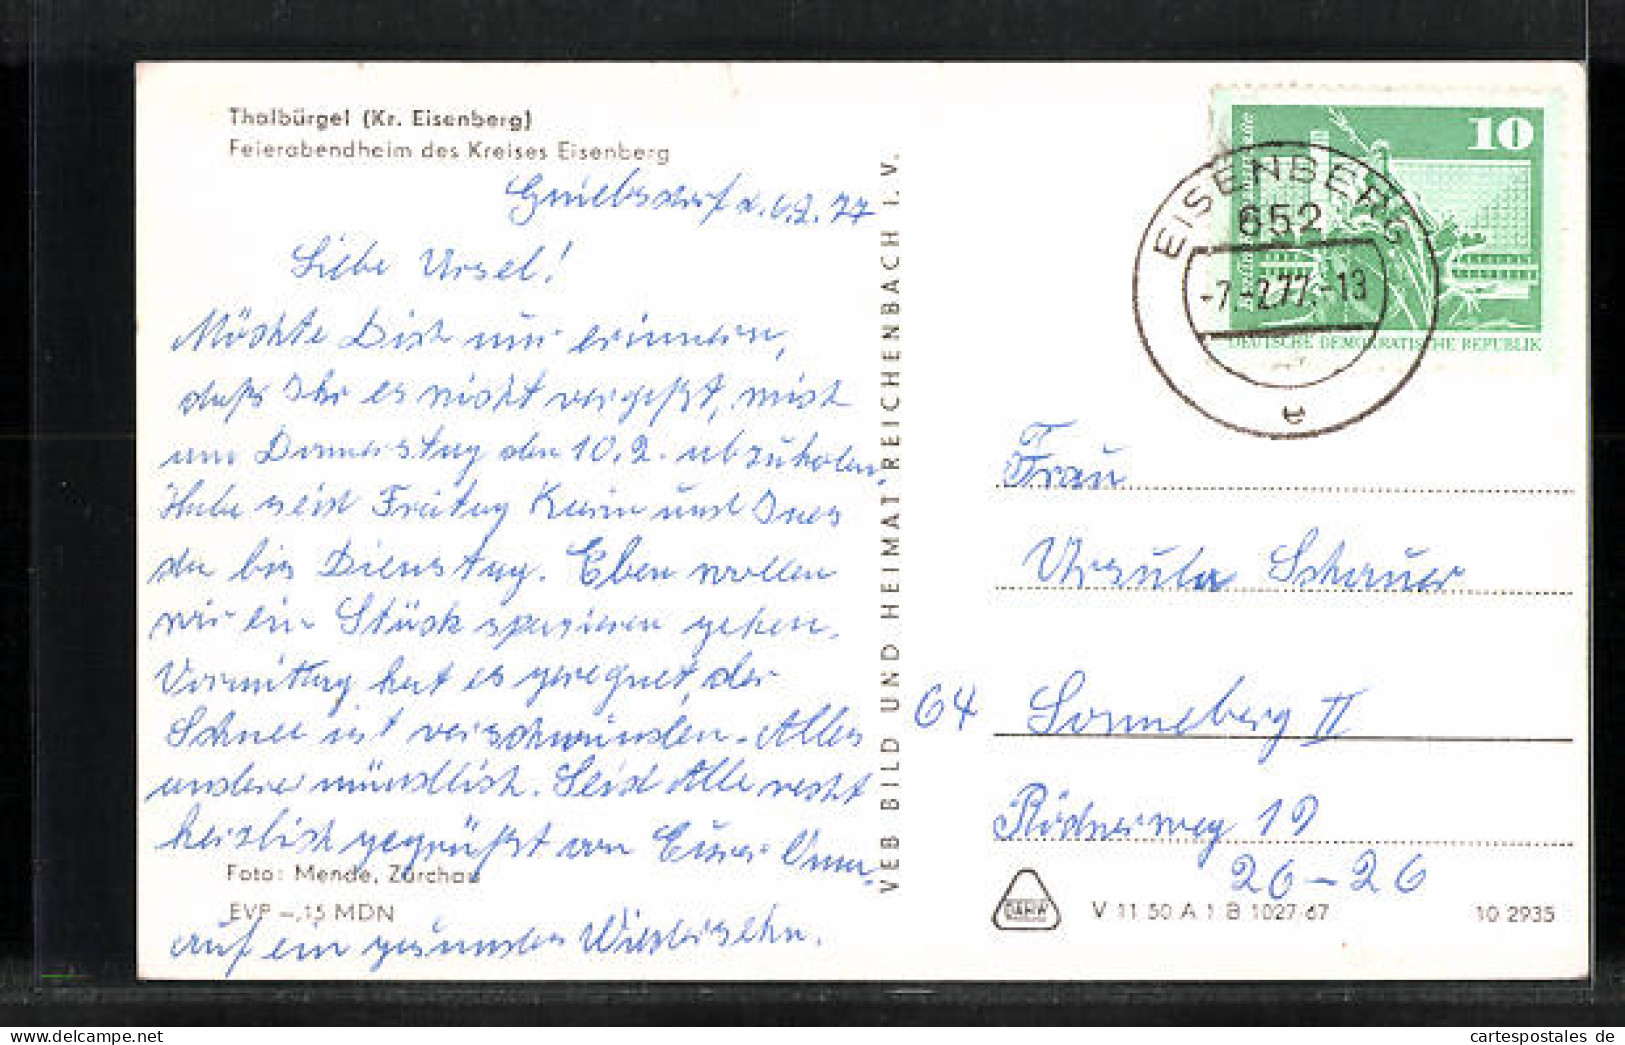 Thalbürgel (Kr. Eisenberg)
Feierabendheim des Kreises Eisenberg
d. 6.2.77
Liebe Ursel!
Möchte Dich nur erinnern,
daß Ihr es nicht vergeßt, mich
am Donnerstag den 10.2. abzuholen.
Habe seit Freitag Karin und Ines
da bis Dienstag. Eben wollen
wir ein Stück spazieren gehen.
Vormittag hat es geregnet, der
Schnee ist verschwunden. Alles
andere mündlich. Seid Alle recht
herzlich gegrüßt von Eurer Oma,
Foto: Mende, Zürchau
EVP –,15 MDN
auf ein gesundes Wiedersehn.
VEB BILD UND HEIMAT REICHENBACH I. V.
10
DEUTSCHE DEMOKRATISCHE REPUBLIK
EISENBERG
652
-7.-2.77.-13
Frau
Ursula Schauer
64 Sonneberg II
Rödnerweg 19
26 – 26
V 11 50 A 1 B 1027/67
10 2935
cartespostales.de